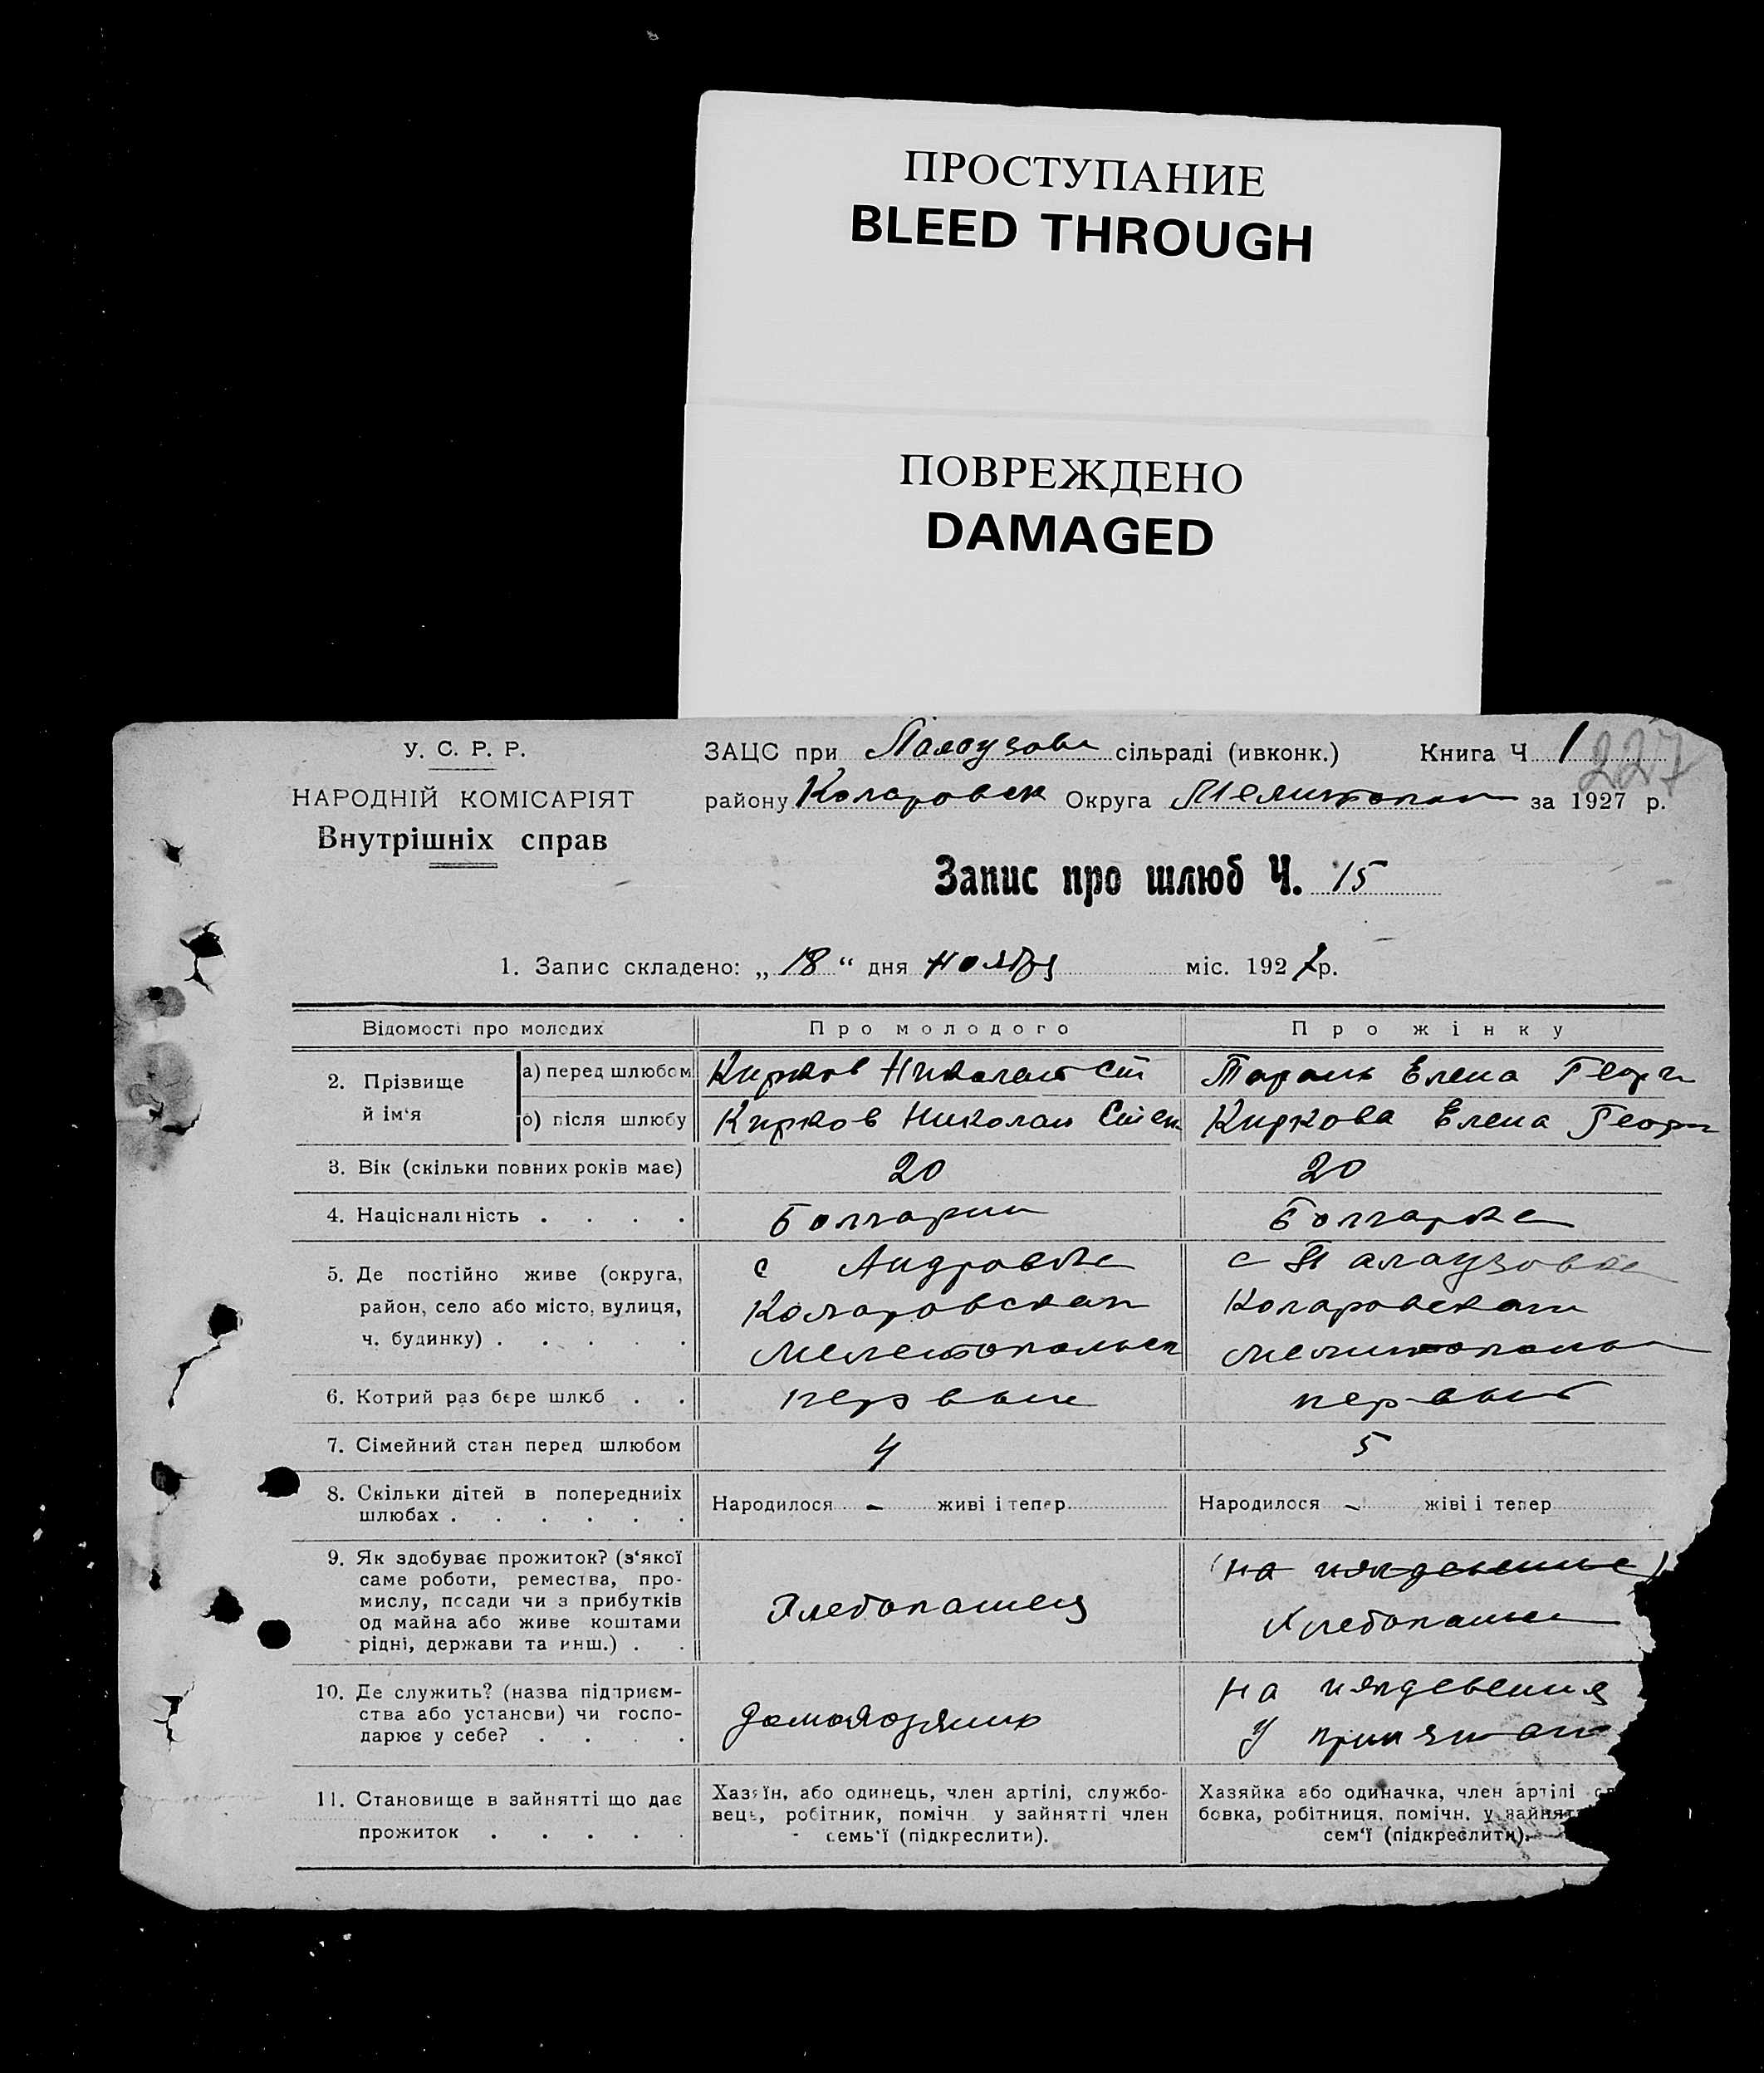 ПРОСТУПАНИЕ
BLEED THROUGH
ПОВРЕЖДЕНО
DAMAGED
У. С. Р. Р.
НАРОДНІЙ КОМІСАРІЯТ
Внутрішніх справ
ЗАЦС при Палаузов сільраді (ивконк.) Книга Ч 1 227
району Коларовск Округа Мелитопол за 1927 р.
Запис про шлюб Ч. 15
1. Запис складено: „ 18 “ дня ноября міс. 1927 р.
Відомості про молодих
Про молодого
Про жінку
2. Прізвище й ім‘я
а) перед шлюбом
Кирков Николай Ст
Елена Георги
б) після шлюбу
Кирков Николай Степ
Киркова Елена Георги
3. Вік (скільки повних років має)
20
20
4. Національність . . . .
Болгарин
Болгарка
5. Де постійно живе (округа,
район, село або місто, вулиця,
ч. будинку) . . . . .
с Андровка
Коларовскаг
Мелетопольск
с Палаузовка
Коларовскаг
Мелитополь
6. Котрий раз бере шлюб . .
первый
первый
7. Сімейний стан перед шлюбом
4
5
8. Скільки дітей в попередниіх
шлюбах . . . . . .
Народилося - живі і тепер
Народилося - жіві і тепер
9. Як здобуває прожиток? (з‘якої
саме роботи, ремества, про-
мислу, посади чи з прибутків
од майна або живе коштами
рідні, держави та инш.) . .
Хлебопашец
(на иждевение)
Хлебопаше
10. Де служить? (назва підприєм-
ства або установи) чи госпо-
дарює у себе? . . . .
домохозяин
на иждевения
у
11. Становище в зайнятті що дає
прожиток . . . . .
Хазяїн, або одинець, член артілі, службо-
вець, робітник, помічн у зайнятті член
семь‘ї (підкреслити).
Хазяйка або одиначка, член артілі
бовка, робітниця, помічн. у зайнят
сем‘ї (підкреслити).